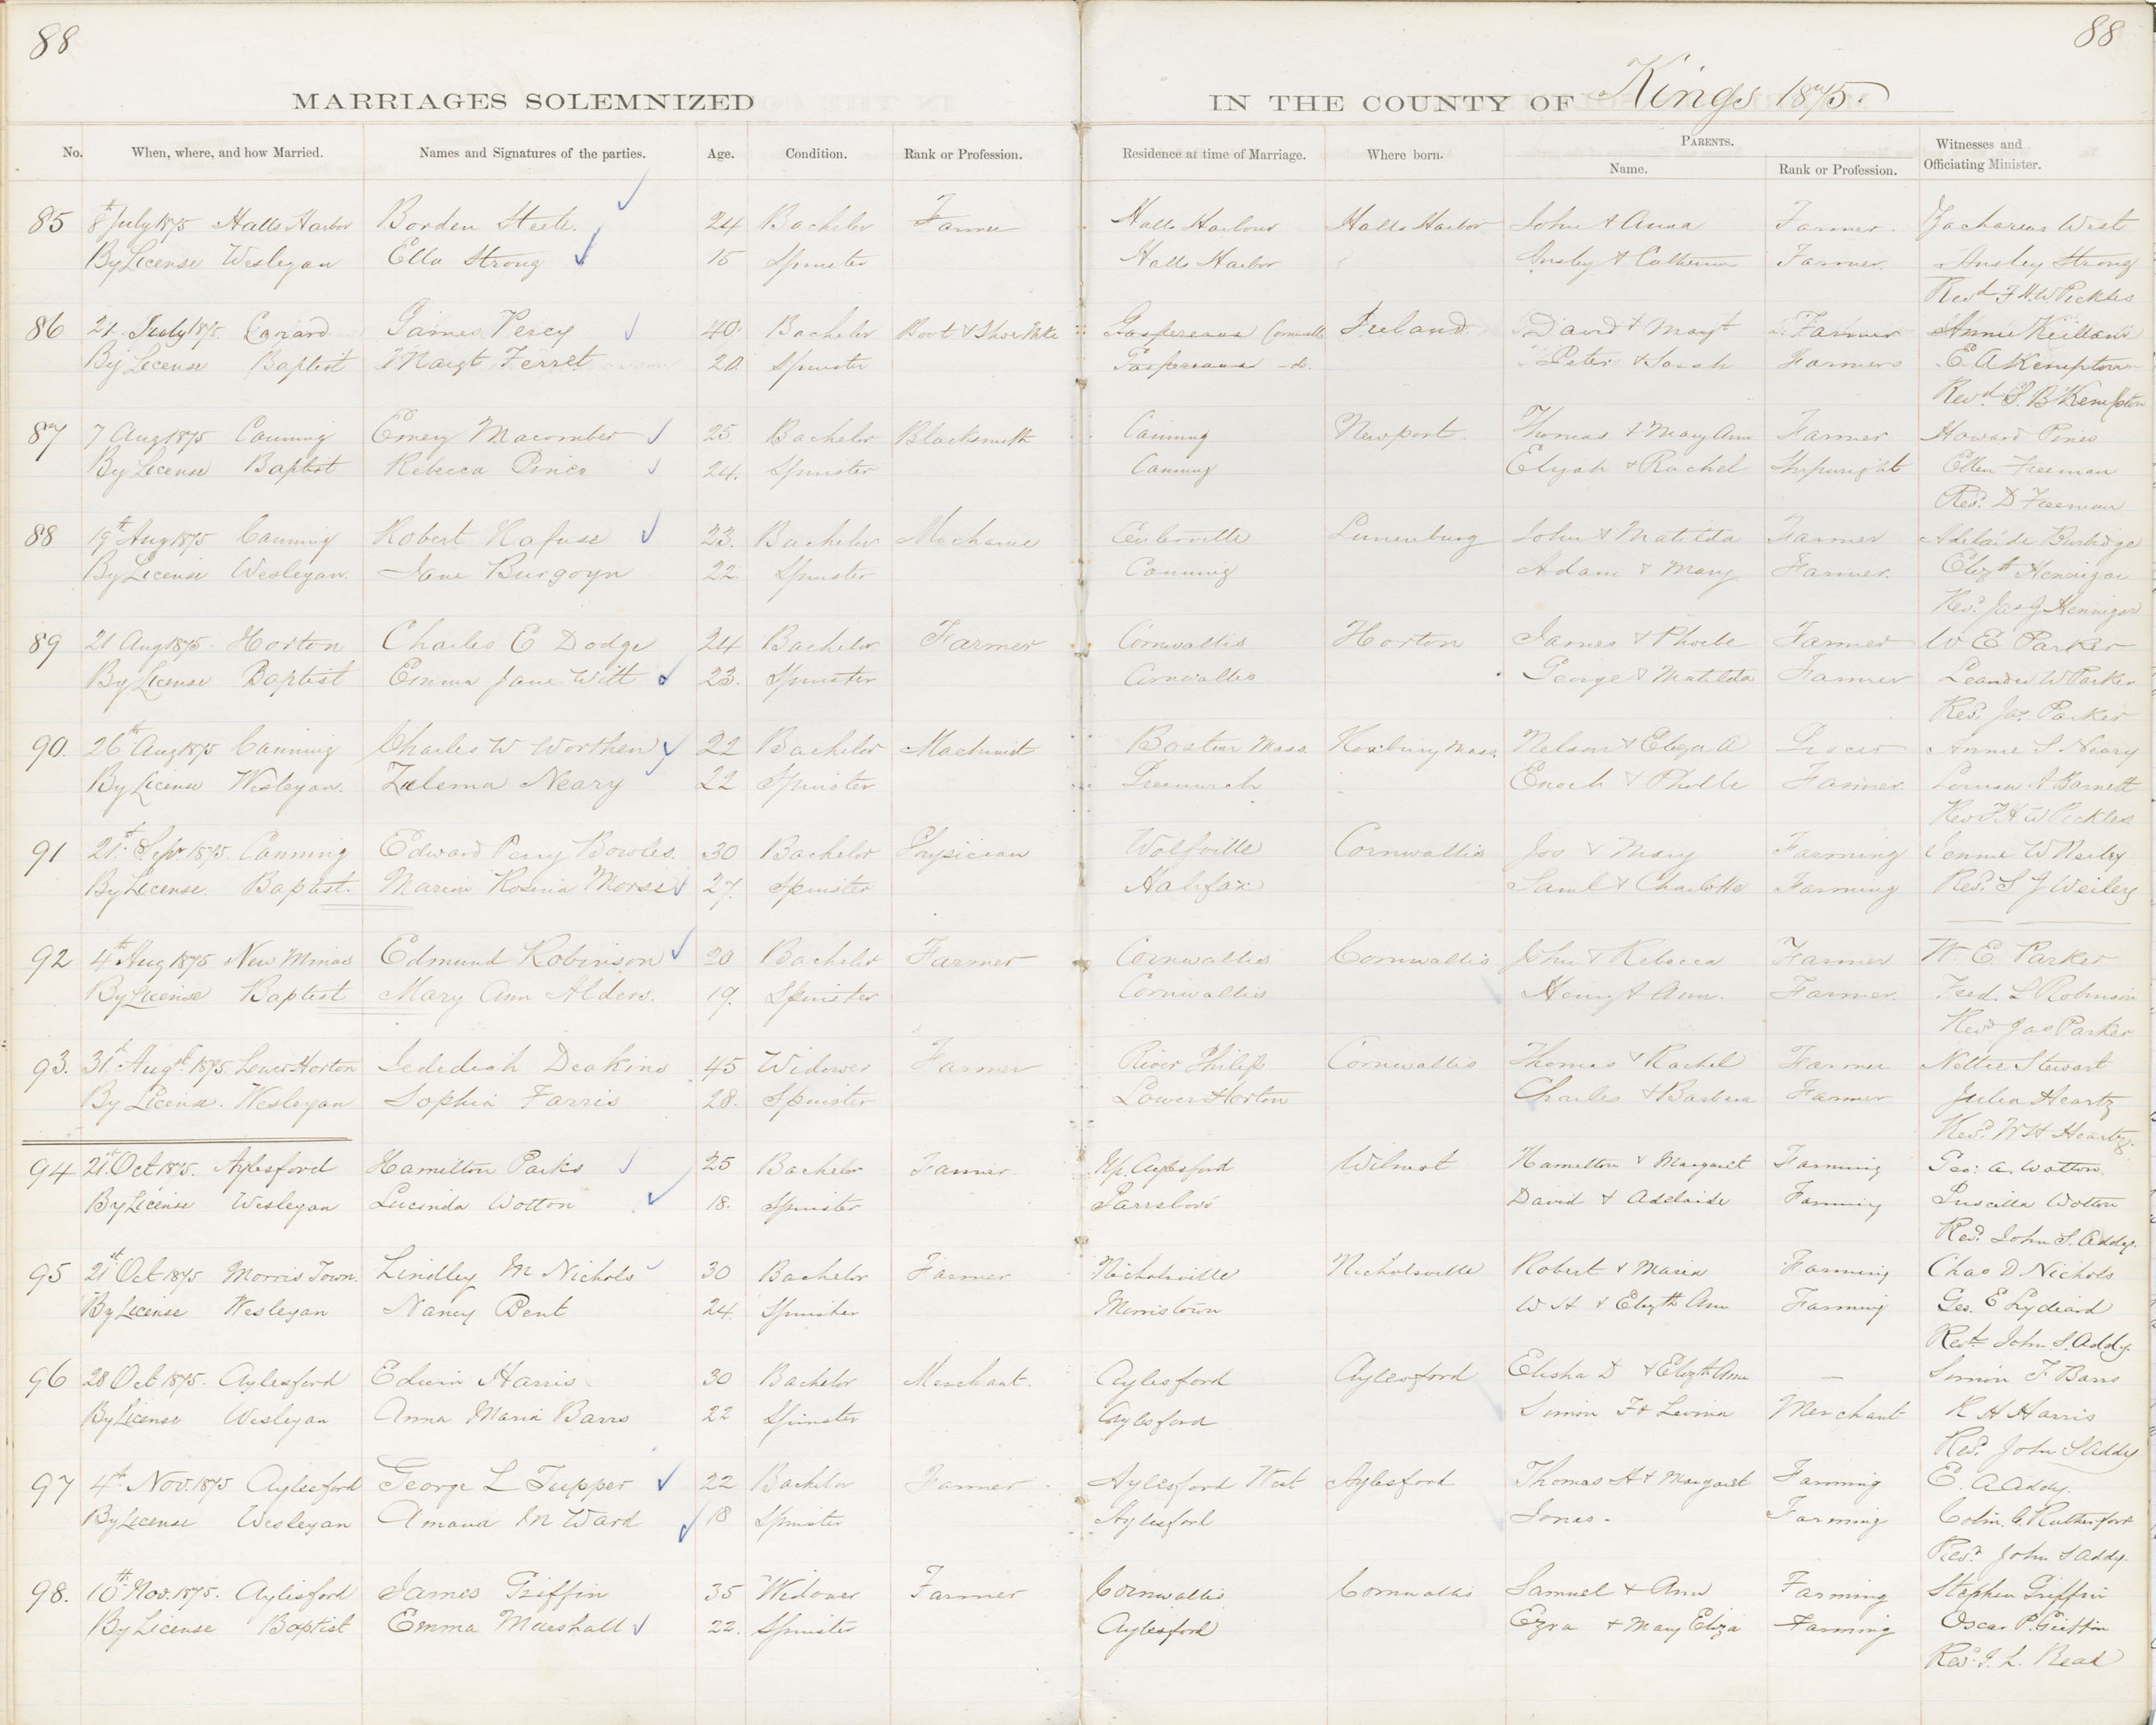 88
88
MARRIAGES SOLEMNIZED IN THE COUNTY OF Kings 1875.
No. When, where, and how Married. Names and Signatures of the parties. Age. Condition. Rank or Profession. Residence at time of Marriage. Where born. PARENTS. Name. Rank or Profession. Witnesses and Officiating Minister.
85 8th July 1875 Halls Harbor Borden Steele. 24 Bachelor Farmer Halls Harbour Halls Harbor John & Anna Farmer. Zacharias West
By License Wesleyan Ella Strong Spinster Halls Harbor Ansley & Catherine Farmer. Ansley Strong
Revd F. H. W. Pickles
86 21 July 1875 Canard James Percy 40 Bachelor Boot & Shoe Gaspereaux Ireland David & Margt Farmer Annie
By License Baptist Margt Ferret 20 Spinster Gaspereaux - do. Peter & Sarah Farmers E A Kempton
Revd S. B Kempton
87 7 Aug 1875 Canning Emery Macomber 25. Bachelor Blacksmith Canning Newport Thomas & Mary Ann Farmer Howard Pineo
By License Baptist Rebecca Pineo 24. Spinster Canning Elijah & Rachel Shipwright Ellen Freeman
Revd. D Freeman
88 19th Aug 1875 Canning Robert Hafuse 23. Bachelor Mechanic Centerville Lunenburg John & Matilda Farmer Adelaide Burbidge
By License Wesleyan Jane Burgoyn 22. Spinster Canning Adam & Mary Farmer. Elizth Hennigar
Revd. Jas G Hennigar
89 21 Aug 1875. Horton Charles E Dodge 24 Bachelor Farmer Cornwallis Horton James & Phoebe Farmer W E Parker
By License Baptist Emma Jane Witt 23. Spinster Cornwallis George & Matilda Farmer Leander W Parker
Revd. Jas. Parker
90. 26th Aug 1875 Canning Charles W Worthen 22 Bachelor Machinist Boston Mass. Roxbury Mass. Nelson & Eliza A Annie S. Neary
By License Wesleyan. Zulema Neary 22 Spinster Greenwich Enoch & Phoebe Farmer. Barnett
Rev F. H W Pickles
91 21st Sep 1875. Canning Edward Perry Bowles. 30 Bachelor Physician Wolfville Cornwallis Jos & Mary Farming Jennie W
By License. Baptist. Maria Rosina Morse 27. Spinster Halifax Saml & Charlotte Farming Revd. S J
92 4th Aug 1875 New Minas Edmund Robinson 20 Bachelor Farmer Cornwallis Cornwallis John & Rebecca Farmer W. E. Parker
By License Baptist Mary Ann Alders. 19. Spinster Cornwallis Henry & Ann. Farmer. Fred. L Robinson
Revd Jas Parker
93. 31st Augst 1875. Lower Horton Jedediah Deakins 45 Widower Farmer River Philip Cornwallis Thomas & Rachel Farmer Nettie Stewart
By License. Wesleyan Sophia Farris 28. Spinster Lower Horton Charles & Barbara Farmer Julia Heartz
Revd. W H Heartz.
94 21st Oct 1875. Aylesford Hamilton Parks 25 Bachelor Farmer. Up. Aylesford Wilmot Hamilton & Margaret Farming Geo: A. Wotton.
By License Wesleyan Lucinda Wotton 18. Spinster Parrsboro David & Adelaide Farming Priscilla Wotton
Revd. John S. Addy.
95 21st Oct 1875 Morris Town. Lindley M Nichols 30 Bachelor Farmer Nicholsville Nicholsville Robert & Maria Farming Chas D Nichols
By License Wesleyan Nancy Bent 24. Spinster Morristown W H & Elizth Ann Farming Geo. E Lydiard
Revd. John S. Addy.
96 28 Oct 1875. Aylesford Edwin Harris 30 Bachelor Merchant. Aylesford Aylesford Elisha D & Elizth Ann — Simon F Barss
By License Wesleyan Anna Maria Barss 22 Spinster Aylesford Simon F & Levina Merchant R H Harris
Revd. John S Addy
97 4th Nov. 1875 Aylesford George L Tupper 22 Bachelor Farmer Aylesford West Aylesford Thomas H & Margaret Farming E. A Addy.
By License Wesleyan Amand M Ward 18 Spinster Aylesford Jonas - Farming Colin C. Rutherford
Revd. John S Addy.
98. 10th Nov. 1875. Aylesford James Griffin 35 Widower Farmer Cornwallis Cornwallis Samuel & Ann Farming Stephen Griffin
By License Baptist Emma Marshall 22. Spinster Aylesford Ezra & Mary Eliza Farming Oscar P. Griffin
Revd. J. L. Read